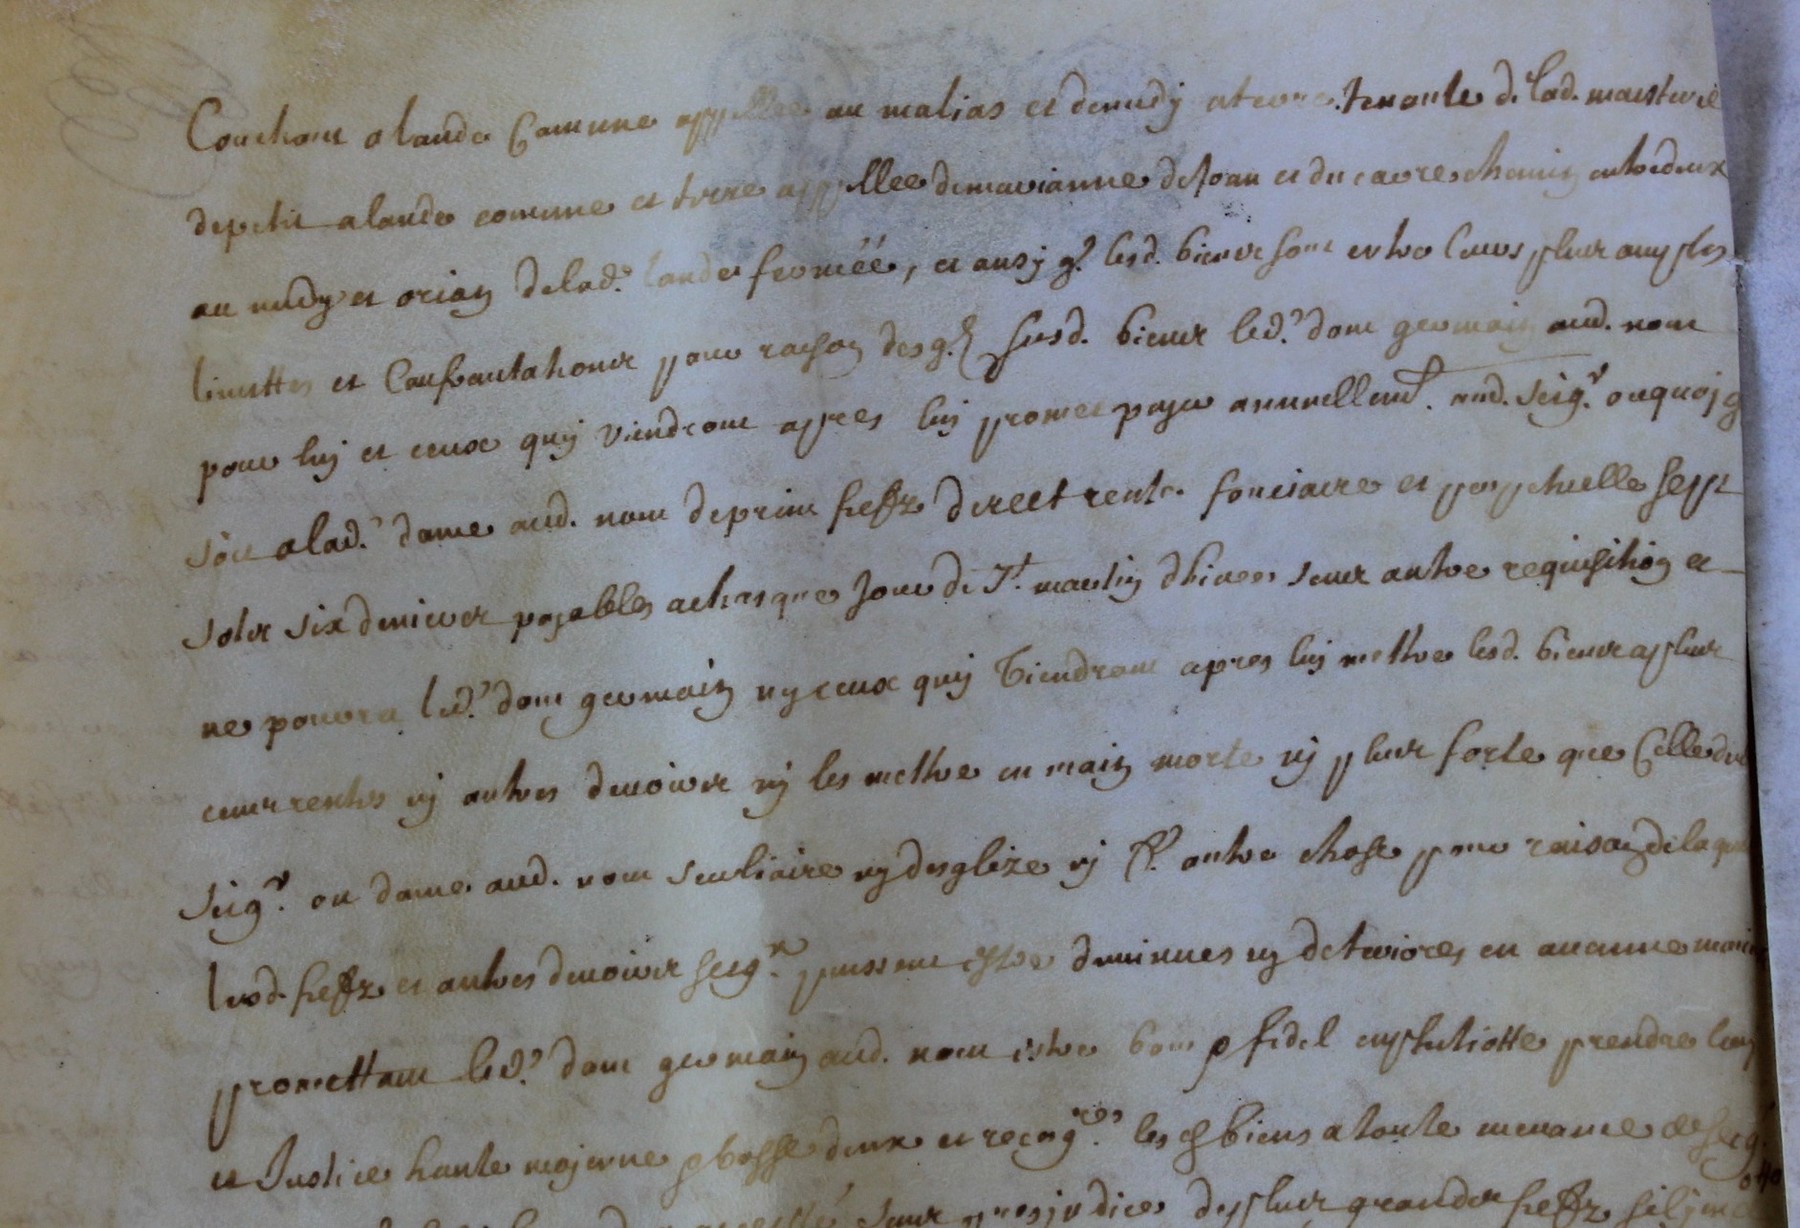 Couchant a lande Comune appellee au malias et demidy a terre tenante de lad. maisterie
depetit a lande comune et terre appellee demarianne de Joan et du carre chemin entredeux
au midy et orian delad.e lande fermée, et ausy q.e lesd. biens sont entre leurs plus amples
limittes et Confrontations pour raison desq.lz susd. biens led.t dom germain aud. nom
pour luy et ceux quy viendront apres luy promet payer annuellem.t aud. seig.r ou quoy q
soit a lad.e dame aud. nom de prim fieffz direct rente fonciaire et perpetuelle sept
solz six deniers payables achasque Jour de S.t martin dhiver sans autre requisition et
ne pourra led.t dom germain ny ceux quy viendront apres luy mettre lesd. biens a plus
cens rentes ny autres devoirs ny les mettre en main morte ny plus forte que Celle dud
seig.r ou dame aud. nom seculiaire ny desglize ny autre chose pour raison de laque
lesd. fieffz et autres devoirs seig.x puissent estre diminues ny deteriores en aucune manie
promettant led.t dom germain aud. nom estre bon & fidel emphitiotte prendre
et Justice haute mojenne & basse deux et recog.res les biens a toute
sans prejudice de plus grandz fieffz sil